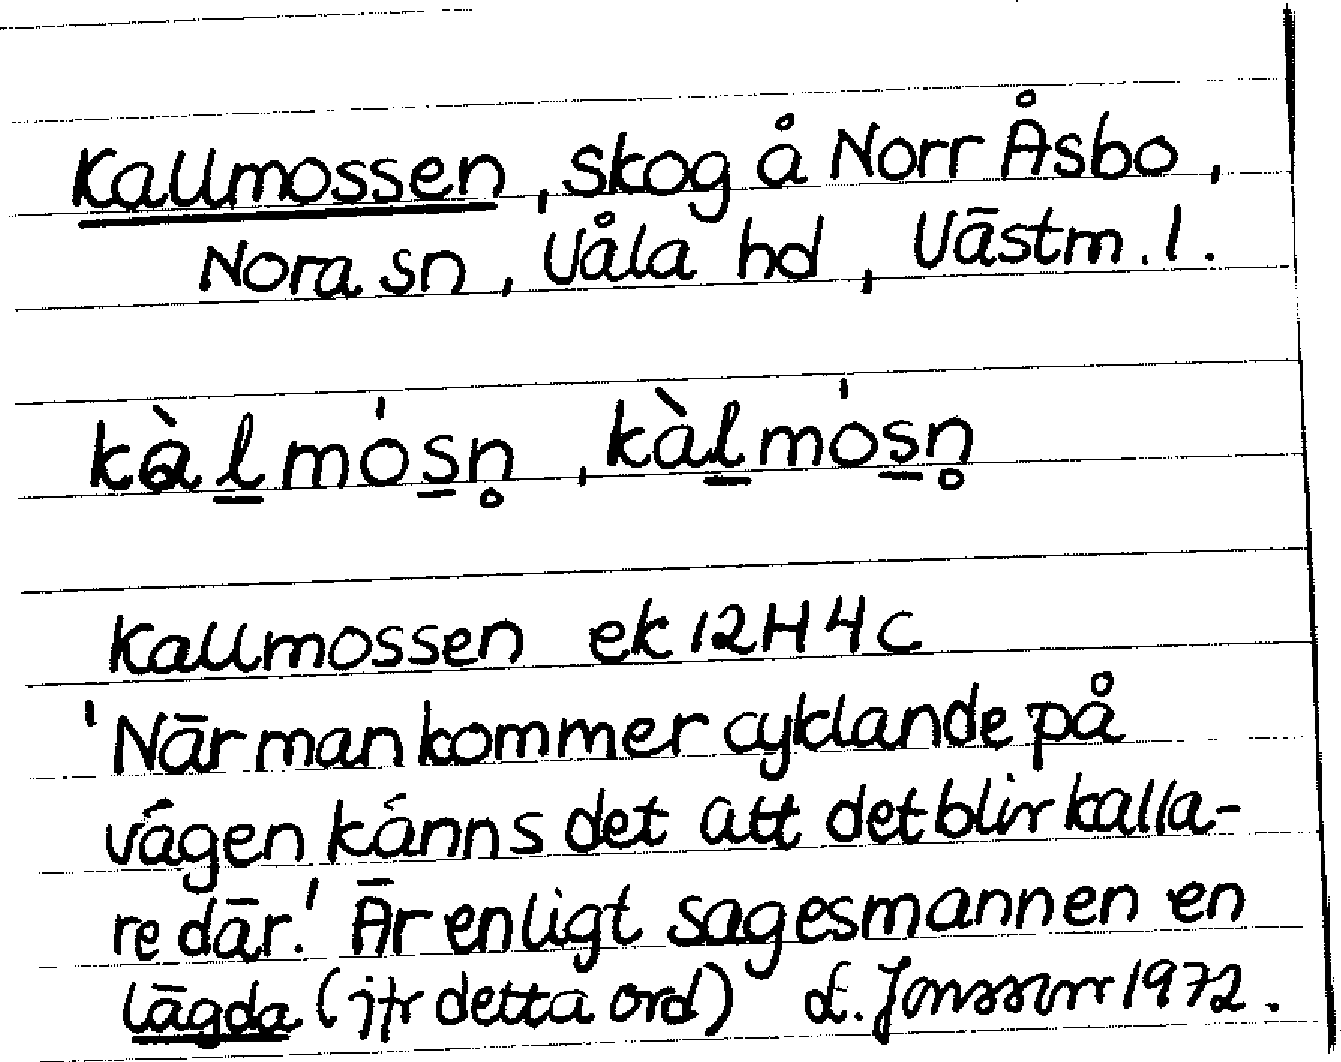 Kallmossen, skog å Norr Åsbo,
Nora sn, Våla hd, Västm.l.
kàlmósn̥, kàlmósn̥
Kallmossen ek 12H4c
'När man kommer cyklande på
vägen känns det att det blir kalla-
re där.' Är enligt sagesmannen en
lägda (jfr detta ord) L. Jonsson 1972.